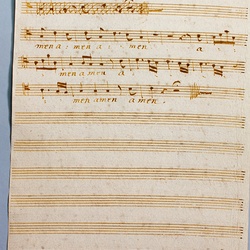 men a: men a men a
men a men a
men amen a men.